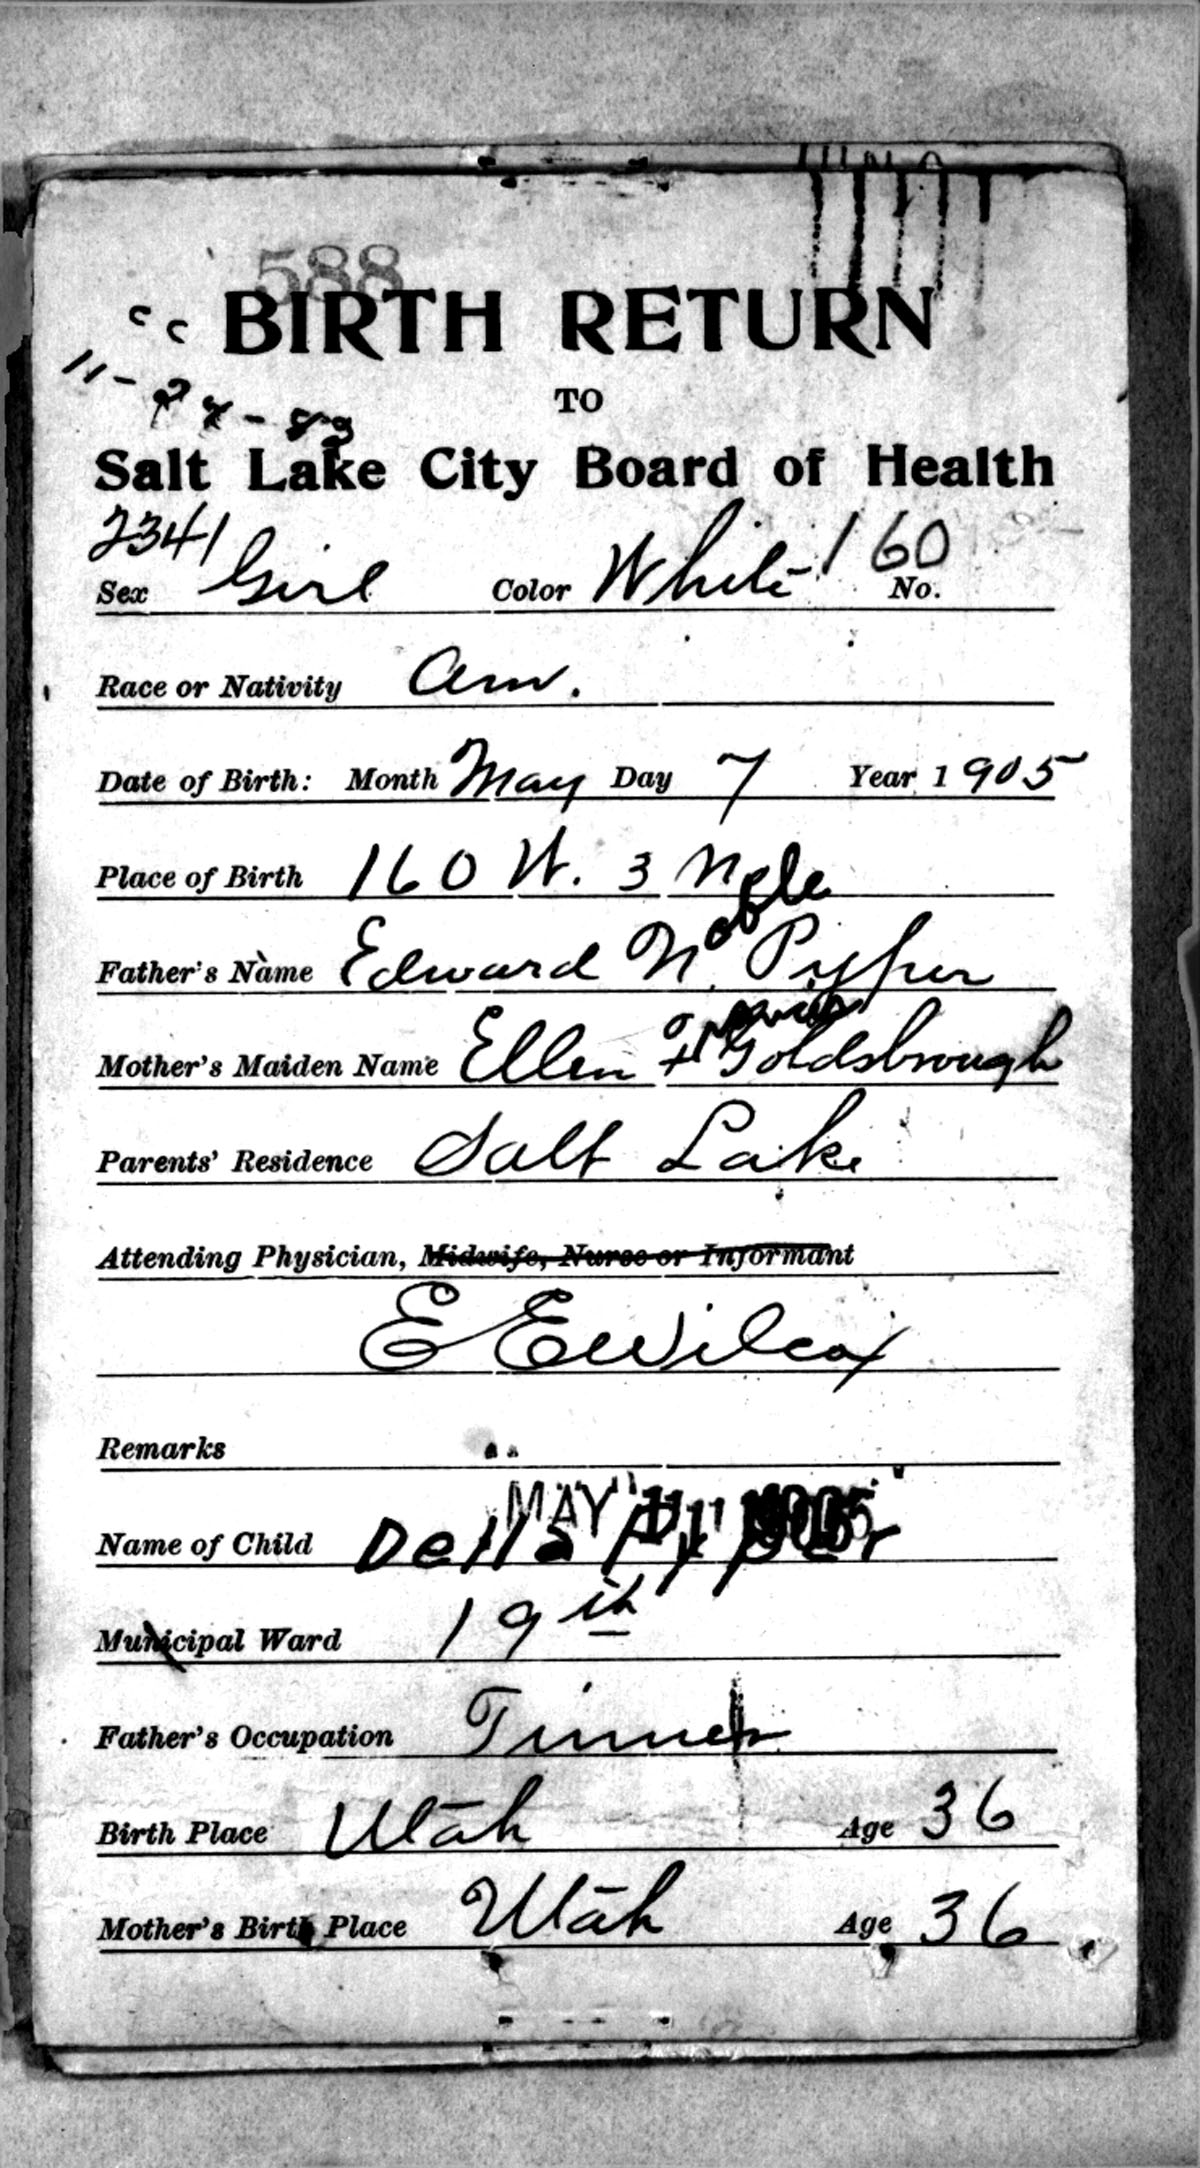 588
BIRTH RETURN
cc
11-28-83
TO
Salt Lake City Board of Health
2341
160
Sex Girl Color White No.
Race or Nativity Am.
Date of Birth: Month May Day 7 Year 1905
Place of Birth 160 W. 3 N
Noble
Father's Name Edward N. Pyper
Mother's Maiden Name Ellen F Goldsbrough
Parents' Residence Salt Lake
Attending Physician, Midwife, Nurse or Informant
E E Wilcox
Remarks
MAY 11 1905
Name of Child Della Pyper
Municipal Ward 19th
Father's Occupation Tinner
Birth Place Utah Age 36
Mother's Birth Place Utah Age 36